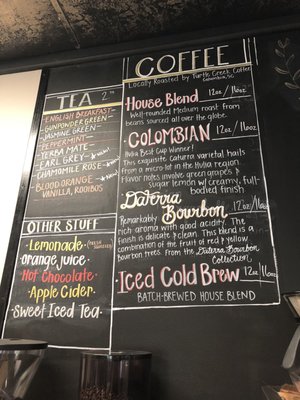 COFFEE
Locally Roasted by Turtle Creek Coffee
House Blend 12oz / 16oz
Well-rounded Medium roast from
beans sourced all over the globe.
COLOMBIAN 12oz / 16oz
Huila Best Cup Winner!
This exquisite caturra varietal hails
from a micro-lot in the Huila region.
Flavor notes involve green grapes &
sugar lemon w/ creamy, full-
bodied finish
Daterra
Bourbon 12oz / 16oz
Remarkably
rich aroma with good acidity. The
finish is delicate & clean. This blend is a
combination of the fruit of red & yellow
bourbon trees, from the Daterra Bourbon
Collection.
Iced Cold Brew 12oz / 16oz
BATCH-BREWED HOUSE BLEND
TEA
ENGLISH BREAKFAST
GUNPOWDER GREEN
JASMINE GREEN
PEPPERMINT
YERBA MATE
EARL GREY
CHAMOMILE ROSE
BLOOD ORANGE
VANILLA, ROOIBOS
OTHER STUFF
Lemonade
Orange juice
Hot Chocolate
Apple Cider
Sweet Iced Tea